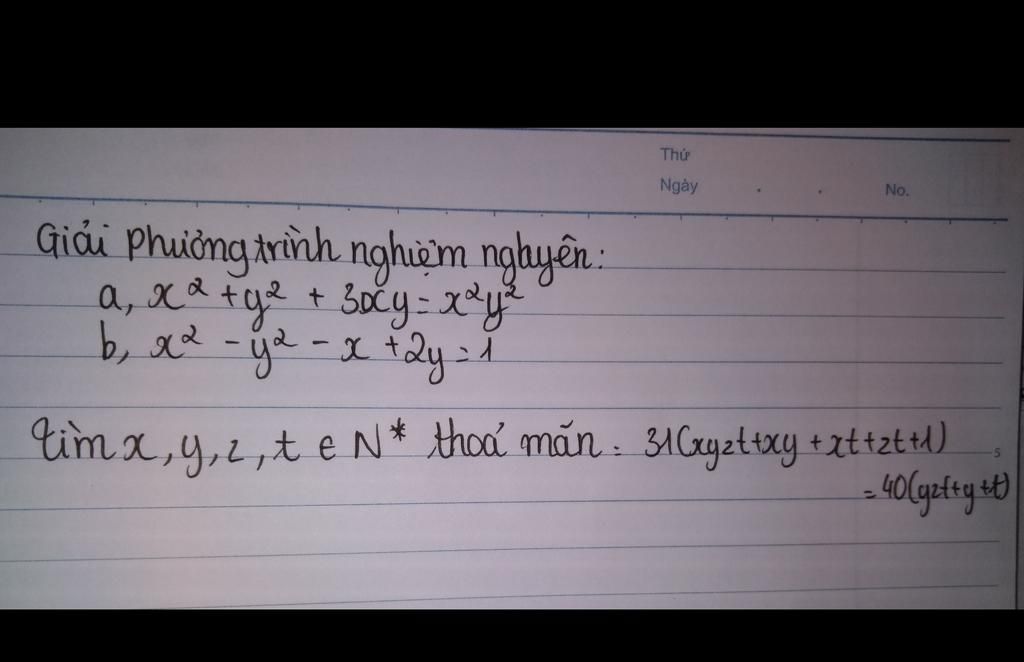 Thứ
Ngày . . No.
Giải phương trình nghiệm nguyên:
a, x² + y² + 3xy = x²y²
b, x² - y² - x + 2y = 1
tìm x, y, z, t ∈ N* thoả mãn: 31(xyzt+xy + xt+zt+1)
= 40(yzt+y+t)